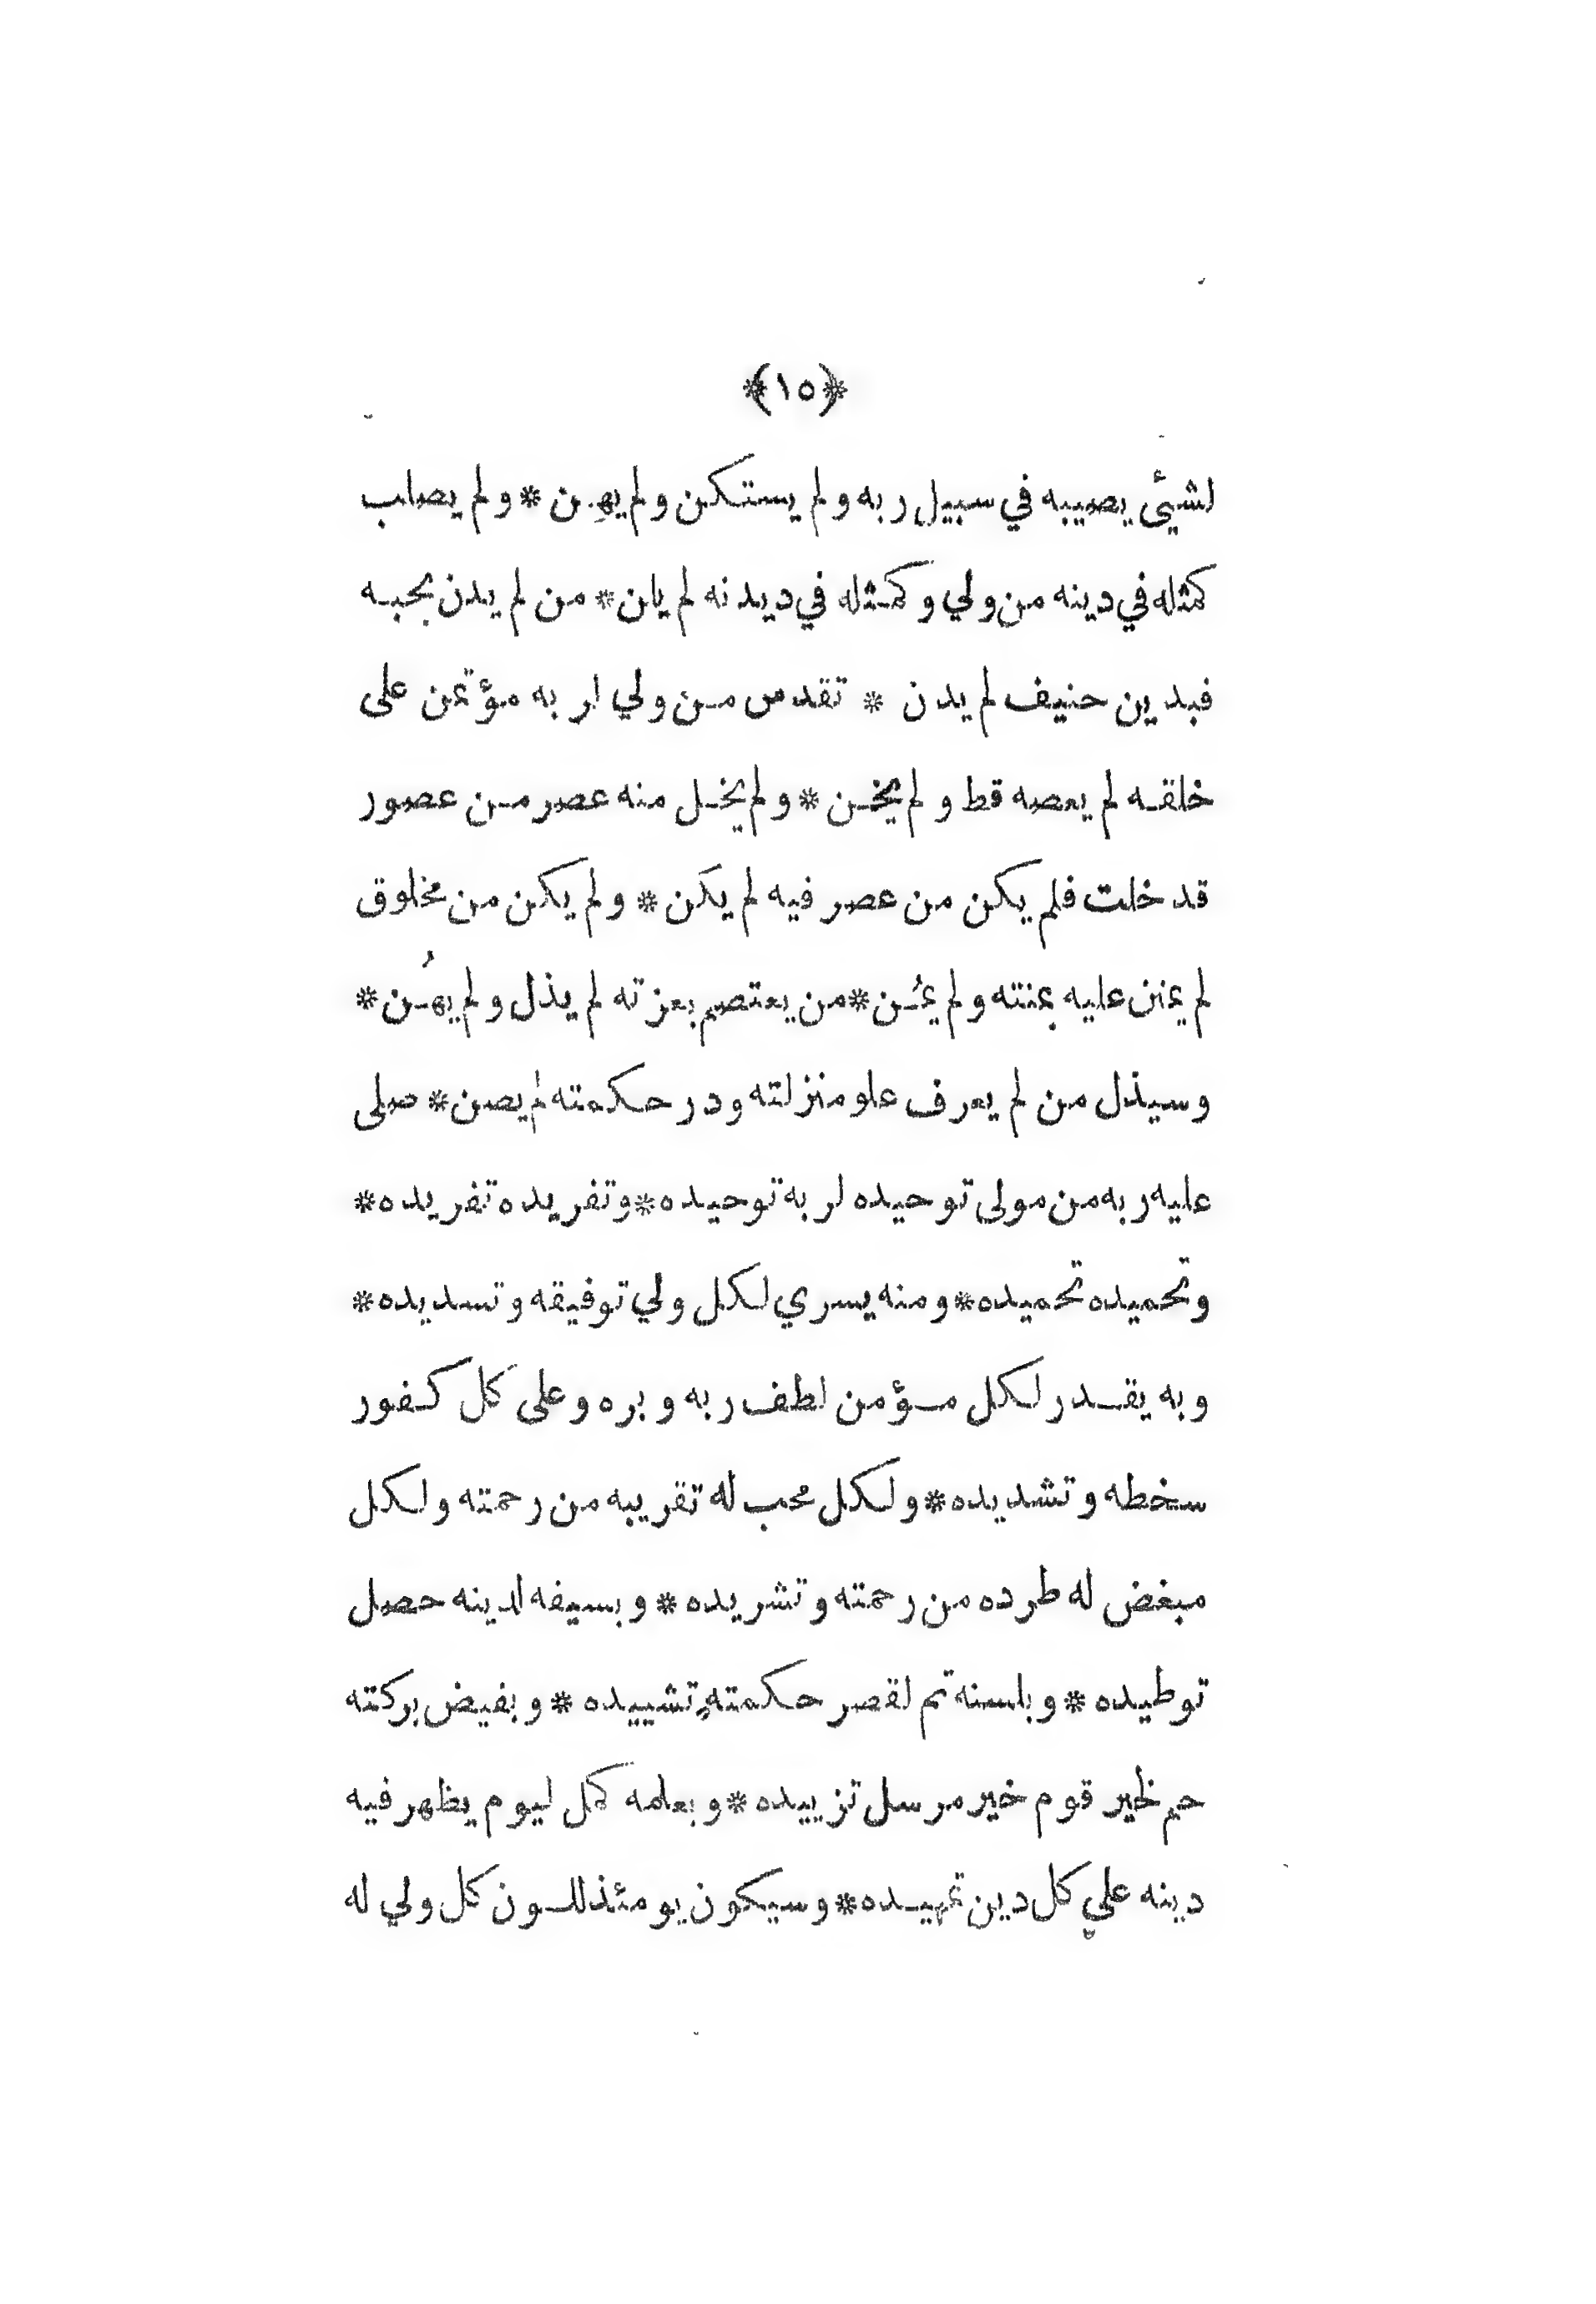 ﴿١٥﴾
لشيئ يصيبه في سبيل ربه ولم يستكن ولم يهِن * ولم يصلب
كمثله في دينه من ولي وكمثله في ديدنه لم يلن * من لم يدن بحبه
فبدين حنيف لم يدن * تقدس من ولي لربه مؤتمن على
خلقه لم يعصه قط ولم يخن * ولم يخل منه عصر من عصور
قد خلت فلم يكن من عصر فيه لم يكن * ولم يكن من مخلوق
لم يمنن عليه بمنته ولم يمُن * من يعتصم بعزته لم يذل ولم يهُن *
وسيذل من لم يعرف علو منزلته ودر حكمته لم يصن * صلى
عليه ربه من مولى توحيده لربه توحيده * وتفريده تفريده *
وتحميده تحميده * ومنه يسري لكل ولي توفيقه وتسديده *
وبه يقدر لكل مؤمن لطف ربه وبره وعلى كل كفور
سخطه وتشديده * ولكل محب له تقريبه من رحمته ولكل
مبغض له طرده من رحمته وتشريده * وبسيفه لدينه حصل
توطيده * وبلسنه تم لقصر حكمتهِ تشييده * وبفيض بركته
حم لخير قوم خير مرسل تزييده * وبعلمه كمل ليوم يظهر فيه
دينه علي كل دين تمهيده * وسيكون يومئذ للون كل ولي له